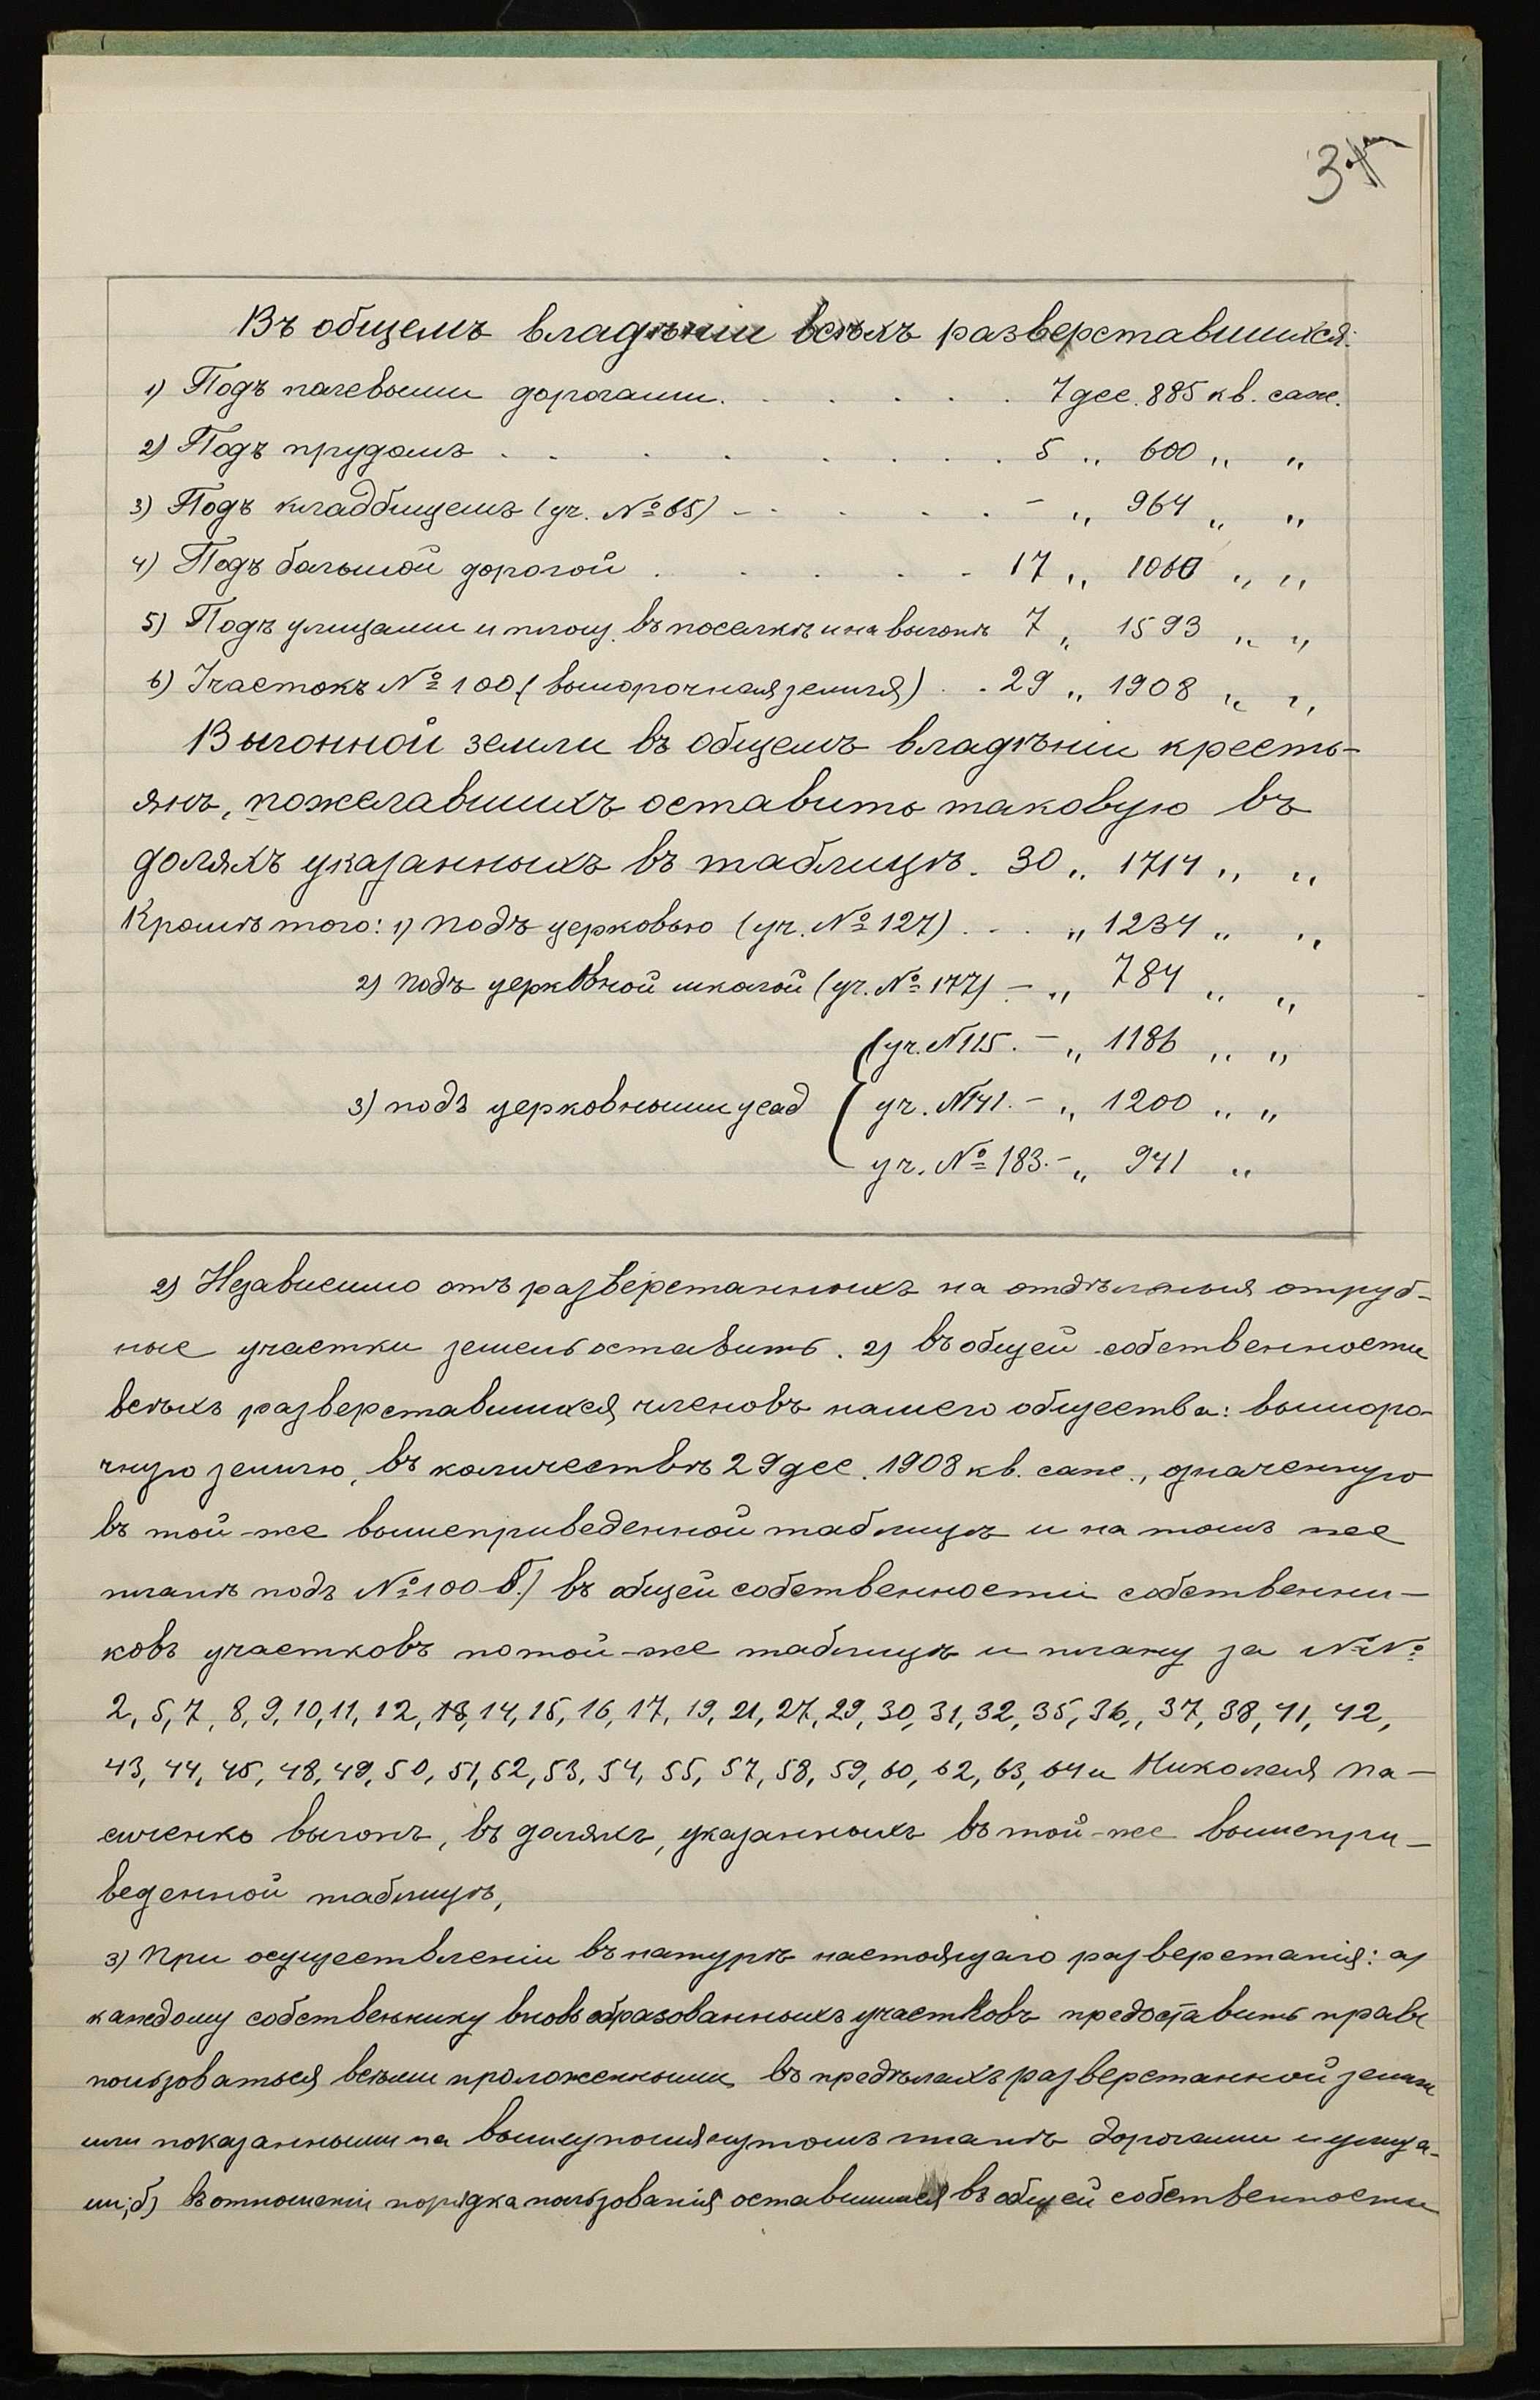 Въ общемъ владѣніи всѣхъ разверставшихся:
1) Подъ полевыми дорогами. . . . . . 7 дес. 885 кв. саж.
2) Подъ прудомъ . . . . . . . . 5 „ 600 „ „
3) Подъ кладбищемъ (уч. № 65) – . . . . – „ 964 „ „
4) Подъ большой дорогой . . . . . 17 „ 1060 „ „
5) Подъ улицами и площ. въ поселкѣ и на выгонѣ 7 „ 1593 „ „
6) Участокъ № 100 (выморочная земля) . . 29 „ 1908 „ „
Выгонной земли въ общемъ владѣніи кресть-
янъ, пожелавшихъ оставить таковую въ
доляхъ указанныхъ въ таблицѣ. 30 „ 1714 „ „
Кромѣ того: 1) подъ церковью (уч. № 127) . . . „ 1234 „ „
2) подъ церковной школой (уч. № 177) – „ 784 „ „
(уч. N 115. – „ 1186 „ „
3) подъ церковными усад ( уч. N 141. – „ 1200 „ „
уч. № 183. – „ 941 „
2) Независимо отъ разверстанныхъ на отдѣльныя отруб-
ные участки земель оставить. а) въ общей собственности
всѣхъ разверставшихся членовъ нашего общества: выморо-
чную землю, въ количествѣ 29 дес. 1908 кв. саж., означенную
въ той-же вышеприведенной таблицѣ и на томъ же
планѣ подъ № 100 б.) въ общей собственности собственни-
ковъ участковъ по той-же таблицѣ и плану за №№
2, 5, 7, 8, 9, 10, 11, 12, 13, 14, 15, 16, 17, 19, 21, 27, 29, 30, 31, 32, 35, 36,, 37, 38, 41, 42,
43, 44, 45, 48, 49, 50, 51, 52, 53, 54, 55, 57, 58, 59, 60, 62, 63, 64 и Николая Па-
сиченко выгонъ, въ доляхъ, указанныхъ въ той-же вышепри-
веденной таблицѣ,
3) При осуществленіи въ натурѣ настоящаго разверстанія: а)
каждому собственнику вновь образованныхъ участковъ предоставить право
пользоваться всѣми проложенными въ предѣлахъ разверстанной земли
или показанными на вышеупомянутомъ планѣ дорогами и улица-
ми; б) въ отношеніи порядка пользованія оставшимися въ общей собственности